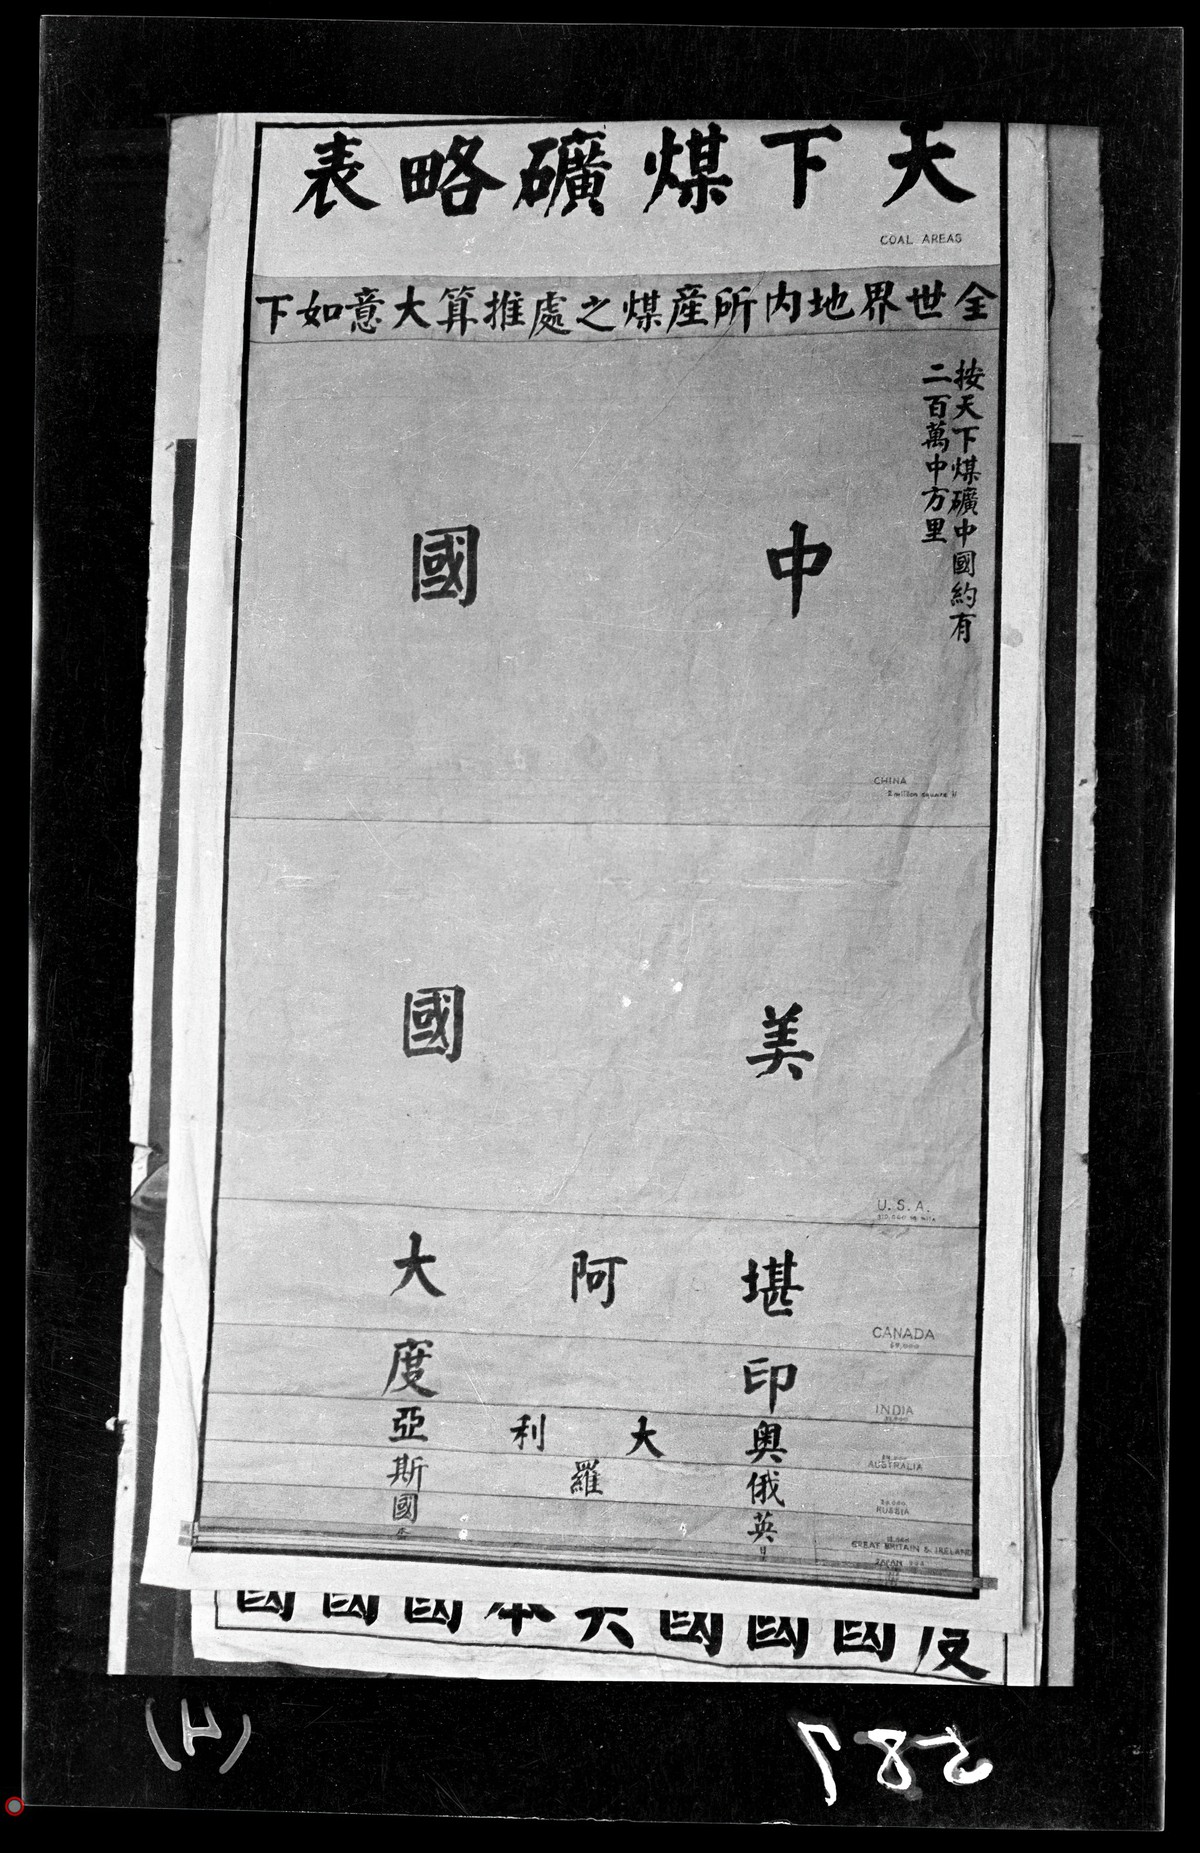 天下煤礦略表
COAL AREAS
全世界地內所産煤之處推算大意如下
按天下煤礦中國約有
二百萬中方里
中國
CHINA
2 million square li
美國
U.S.A.
堪阿大
CANADA
印度
INDIA
奧大利亞
AUSTRALIA
俄羅斯
RUSSIA
英國
GREAT BRITAIN & IRELAND
JAPAN
度國國國大本國國國
(H)
587